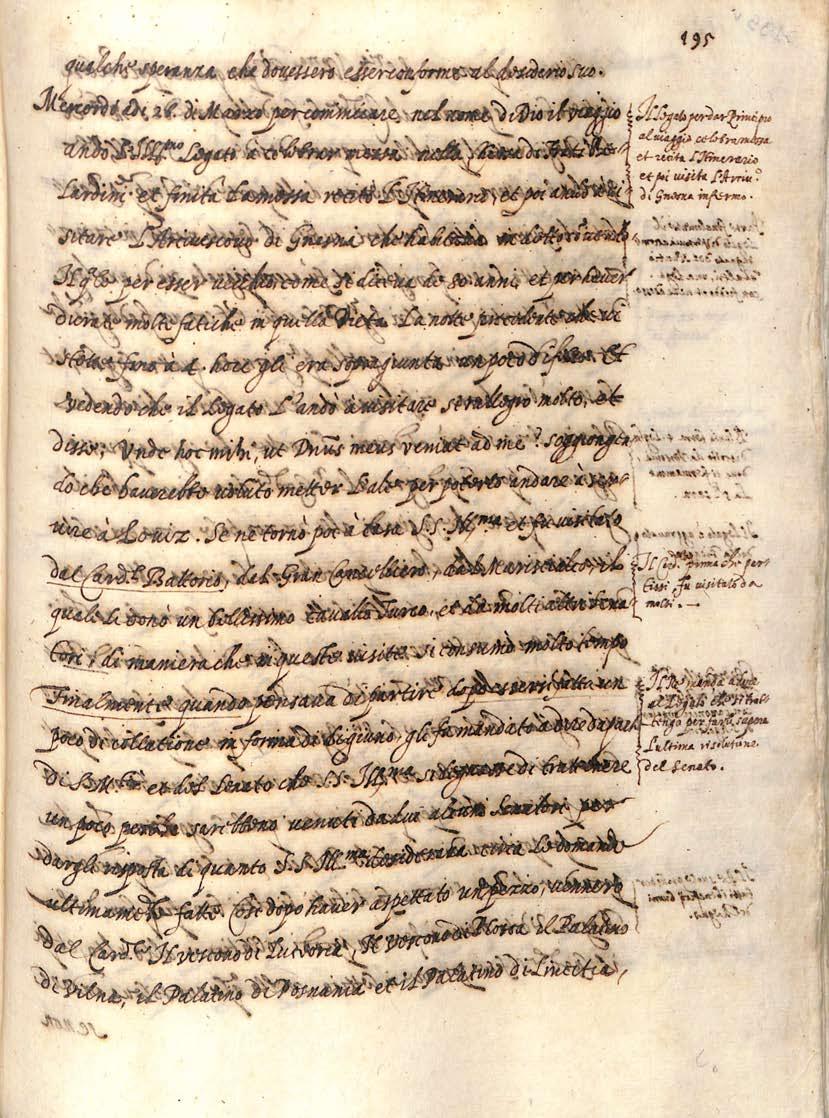 195
qualche speranza che dovessero esser conforme al desiderio suo.
Mercordi à di 28. di Marzo per cominciare nel nome di Dio il viaggio
andò l'Ill.mo Legato à celebrar messa nella chiesa di frati Be-
lardini et finita la messa recitò l'Itinerario, et poi andò à vi
sitare l'Arcivescovo di Gnesna che
Il qle per esser vecchio come si diceva de 80 anni, et per haver
durate molte fatiche in quella Dieta la notte precedente che vi
stette fino à 4. hore gli era sopragiunta un poco di febre. Et
vedendo che il Legato l'andò à visitare si rallegrò molto, et
disse; Unde hoc mihi, ut Dnus meus veniat ad me? soggiongen
do che haverebbe voluto metter l'ale per poterlo andare à ser-
vire à Loviz. Se ne tornò poi à casa S.S. Ill.ma et fu visitato
dal Card.l Battorio, dal Gran Cancelliero, dal Marescialco, il
quale li donò un bellissimo cavallo Turco, et da molti altri Sena
tori, di maniera che in queste visite si consumò molto tempo
Finalmente quando pensava di partire dopo essersi fatta un
poco di collatione in forma di digiuno, gli fu mandato à dire da parte
di S. M.tà et del Senato che S.S. Ill.ma si degnasse di trattenere
un poco perche sarebbeno venuti da lui alcuni Senatori per
dargli risposta di quanto S.S. Ill.ma desiderava circa le domande
ultimamente fatte. Cosi dopo haver aspettato un pezzo, vennero
dal Card.le Il vescovo di Lucoria, Il vescovo di Plozca il Palatino
di Vilna, il Palatino di Posnania et il Palatino di Lincitia,
Il Legato per dar Principio
al viaggio celebra messa
et recita l'Itinerario
et poi visita l'Arciv.o
di Gnesna infermo.
Il Card. prima che par
tissi, fu visitato da
molti.
Il Re manda a dire
al Legato che si trat
tenga per farli sapere
l'ultima risolutione
del Senato.